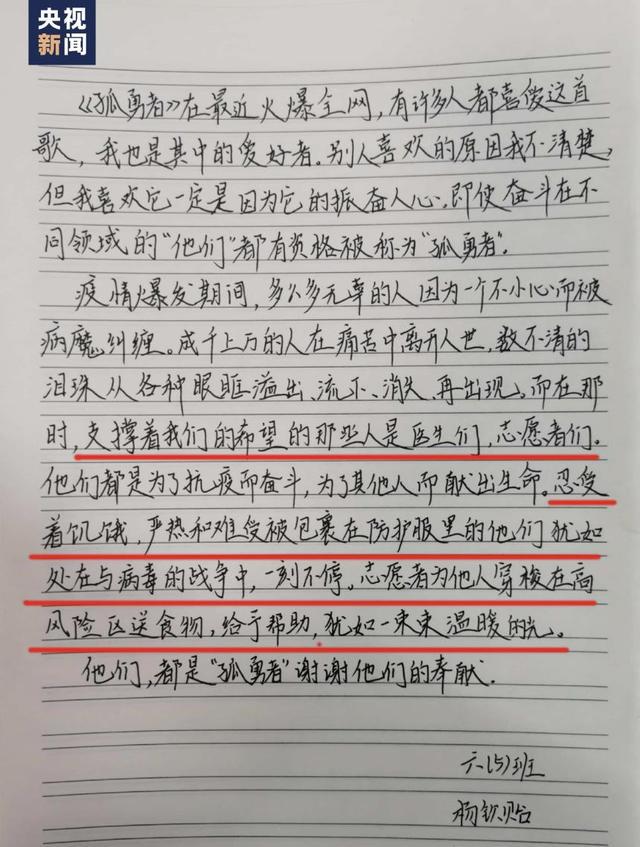 央视
新闻
《孤勇者》在最近火爆全网，有许多人都喜爱这首
歌，我也是其中的爱好者。别人喜欢的原因我不清楚，
但我喜欢它一定是因为它的振奋人心。即使奋斗在不
同领域的“他们”都有资格被称为“孤勇者”。
疫情爆发期间，多么多无辜的人因为一个不小心而被
病魔纠缠。成千上万的人在痛苦中离开人世，数不清的
泪珠从各种眼眶溢出、流下、消失、再出现。而在那
时，支撑着我们的希望的那些人是医生们，志愿者们。
他们都是为了抗疫而奋斗，为了其他人而献出生命。忍受
着饥饿，严热和难受被包裹在防护服里的他们犹如
处在与病毒的战争中，一刻不停。志愿者为他人穿梭在高
风险区送食物，给予帮助，犹如一束束温暖的光。
他们，都是“孤勇者”谢谢他们的奉献.
六(5)班
杨钦贻